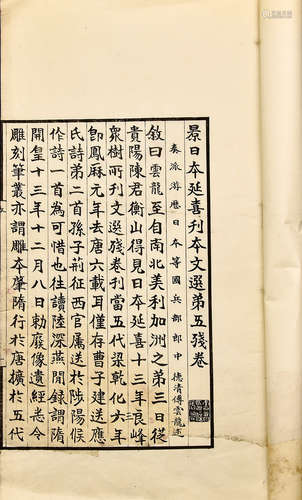 景日本延喜刊本文選第五殘卷
奏派游歷日本等國兵部郎中 德清傅雲龍述
敘曰雲龍至自南北美利加洲之第三日從
貴陽陳君衡山得見日本延喜十三年良峰
眾樹所刊文選殘卷刊當五代梁乾化六年
卽鳳麻元年去唐六載耳僅存曹子建送應
氏詩第二首孫子荊征西官屬送於陟陽候
作詩一首為可惜也往讀陸深燕閒錄謂隋
開皇十三年十二月八日勅廢像遺經悉令
雕刻筆叢亦謂雕本肇隋行於唐擴於五代